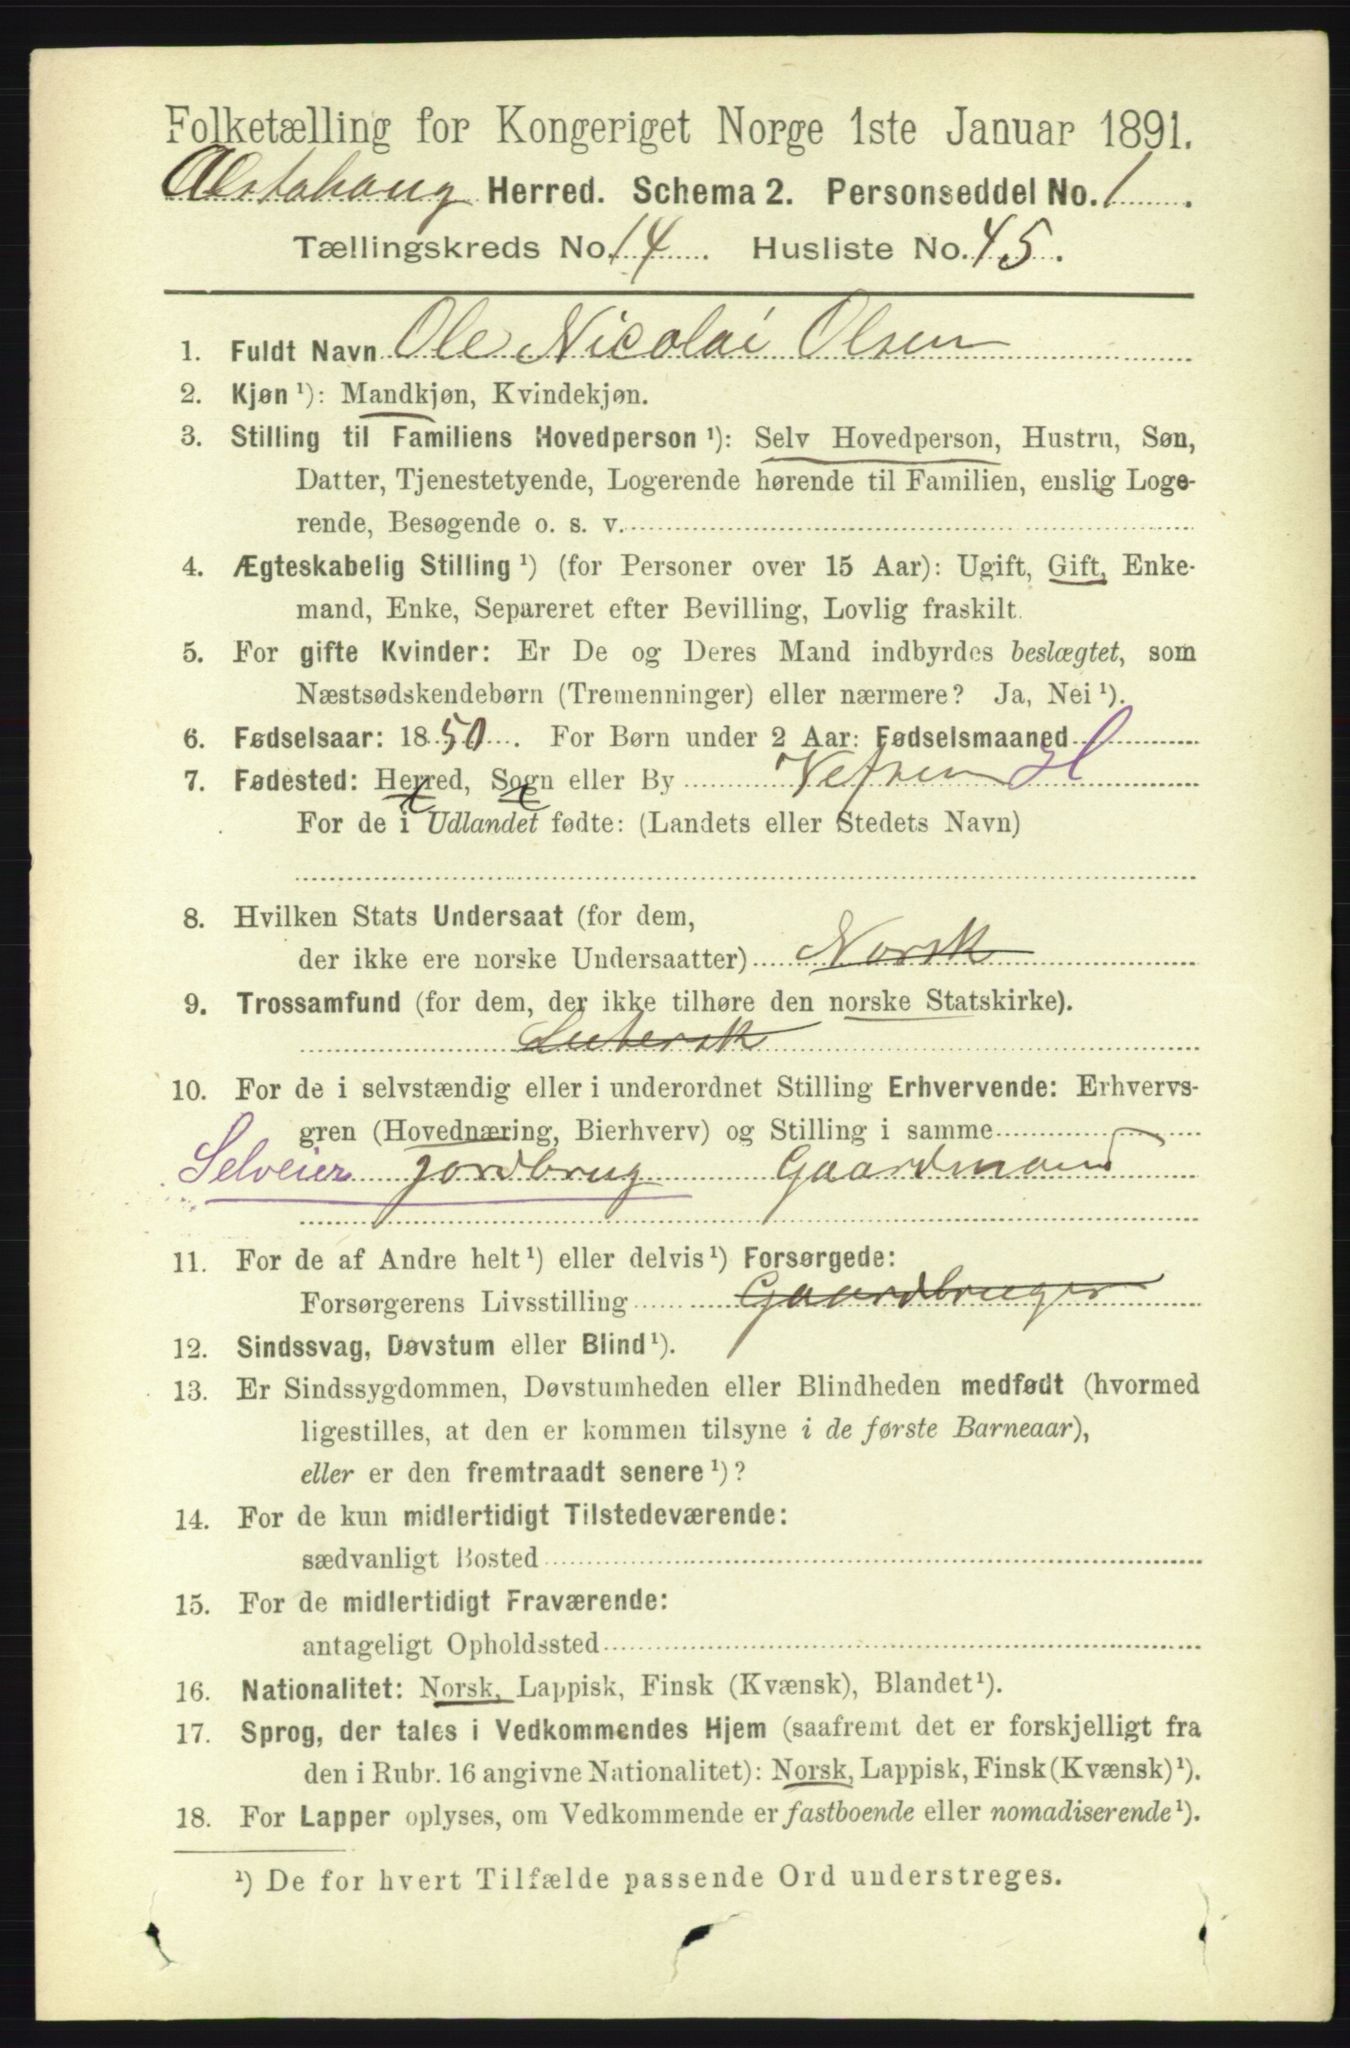 Folketælling for Kongeriget Norge 1ste Januar 1891.
Alstahoug Herred. Schema 2. Personseddel No. 1.
Tællingskreds No. 14. Husliste No. 45.
1. Fuldt Navn Ole Nicolai Olsen
2. Kjøn ¹): Mandkjøn, Kvindekjøn.
3. Stilling til Familiens Hovedperson ¹): Selv Hovedperson, Hustru, Søn,
Datter, Tjenestetyende, Logerende hørende til Familien, enslig Loge-
rende, Besøgende o. s. v.
4. Ægteskabelig Stilling ¹) (for Personer over 15 Aar): Ugift, Gift, Enke-
mand, Enke, Separeret efter Bevilling, Lovlig fraskilt.
5. For gifte Kvinder: Er De og Deres Mand indbyrdes beslægtet, som
Næstsødskendebørn (Tremenninger) eller nærmere? Ja, Nei ¹).
6. Fødselsaar: 1850. For Børn under 2 Aar: Fødselsmaaned
7. Fødested: Herred, Sogn eller By Vefsen H
For de i Udlandet fødte: (Landets eller Stedets Navn)
8. Hvilken Stats Undersaat (for dem,
der ikke ere norske Undersaatter) Norsk
9. Trossamfund (for dem, der ikke tilhøre den norske Statskirke).
Lutersk
10. For de i selvstændig eller i underordnet Stilling Erhvervende: Erhvervs-
gren (Hovednæring, Bierhverv) og Stilling i samme
Selveier jordbrug Gaardmand
11. For de af Andre helt ¹) eller delvis ¹) Forsørgede:
Forsørgerens Livsstilling Gaardbruger
12. Sindssvag, Døvstum eller Blind ¹).
13. Er Sindssygdommen, Døvstumheden eller Blindheden medfødt (hvormed
ligestilles, at den er kommen tilsyne i de første Barneaar),
eller er den fremtraadt senere ¹)?
14. For de kun midlertidigt Tilstedeværende:
sædvanligt Bosted
15. For de midlertidigt Fraværende:
antageligt Opholdssted
16. Nationalitet: Norsk, Lappisk, Finsk (Kvænsk), Blandet ¹).
17. Sprog, der tales i Vedkommendes Hjem (saafremt det er forskjelligt fra
den i Rubr. 16 angivne Nationalitet): Norsk, Lappisk, Finsk (Kvænsk) ¹).
18. For Lapper oplyses, om Vedkommende er fastboende eller nomadiserende ¹).
¹) De for hvert Tilfælde passende Ord understreges.